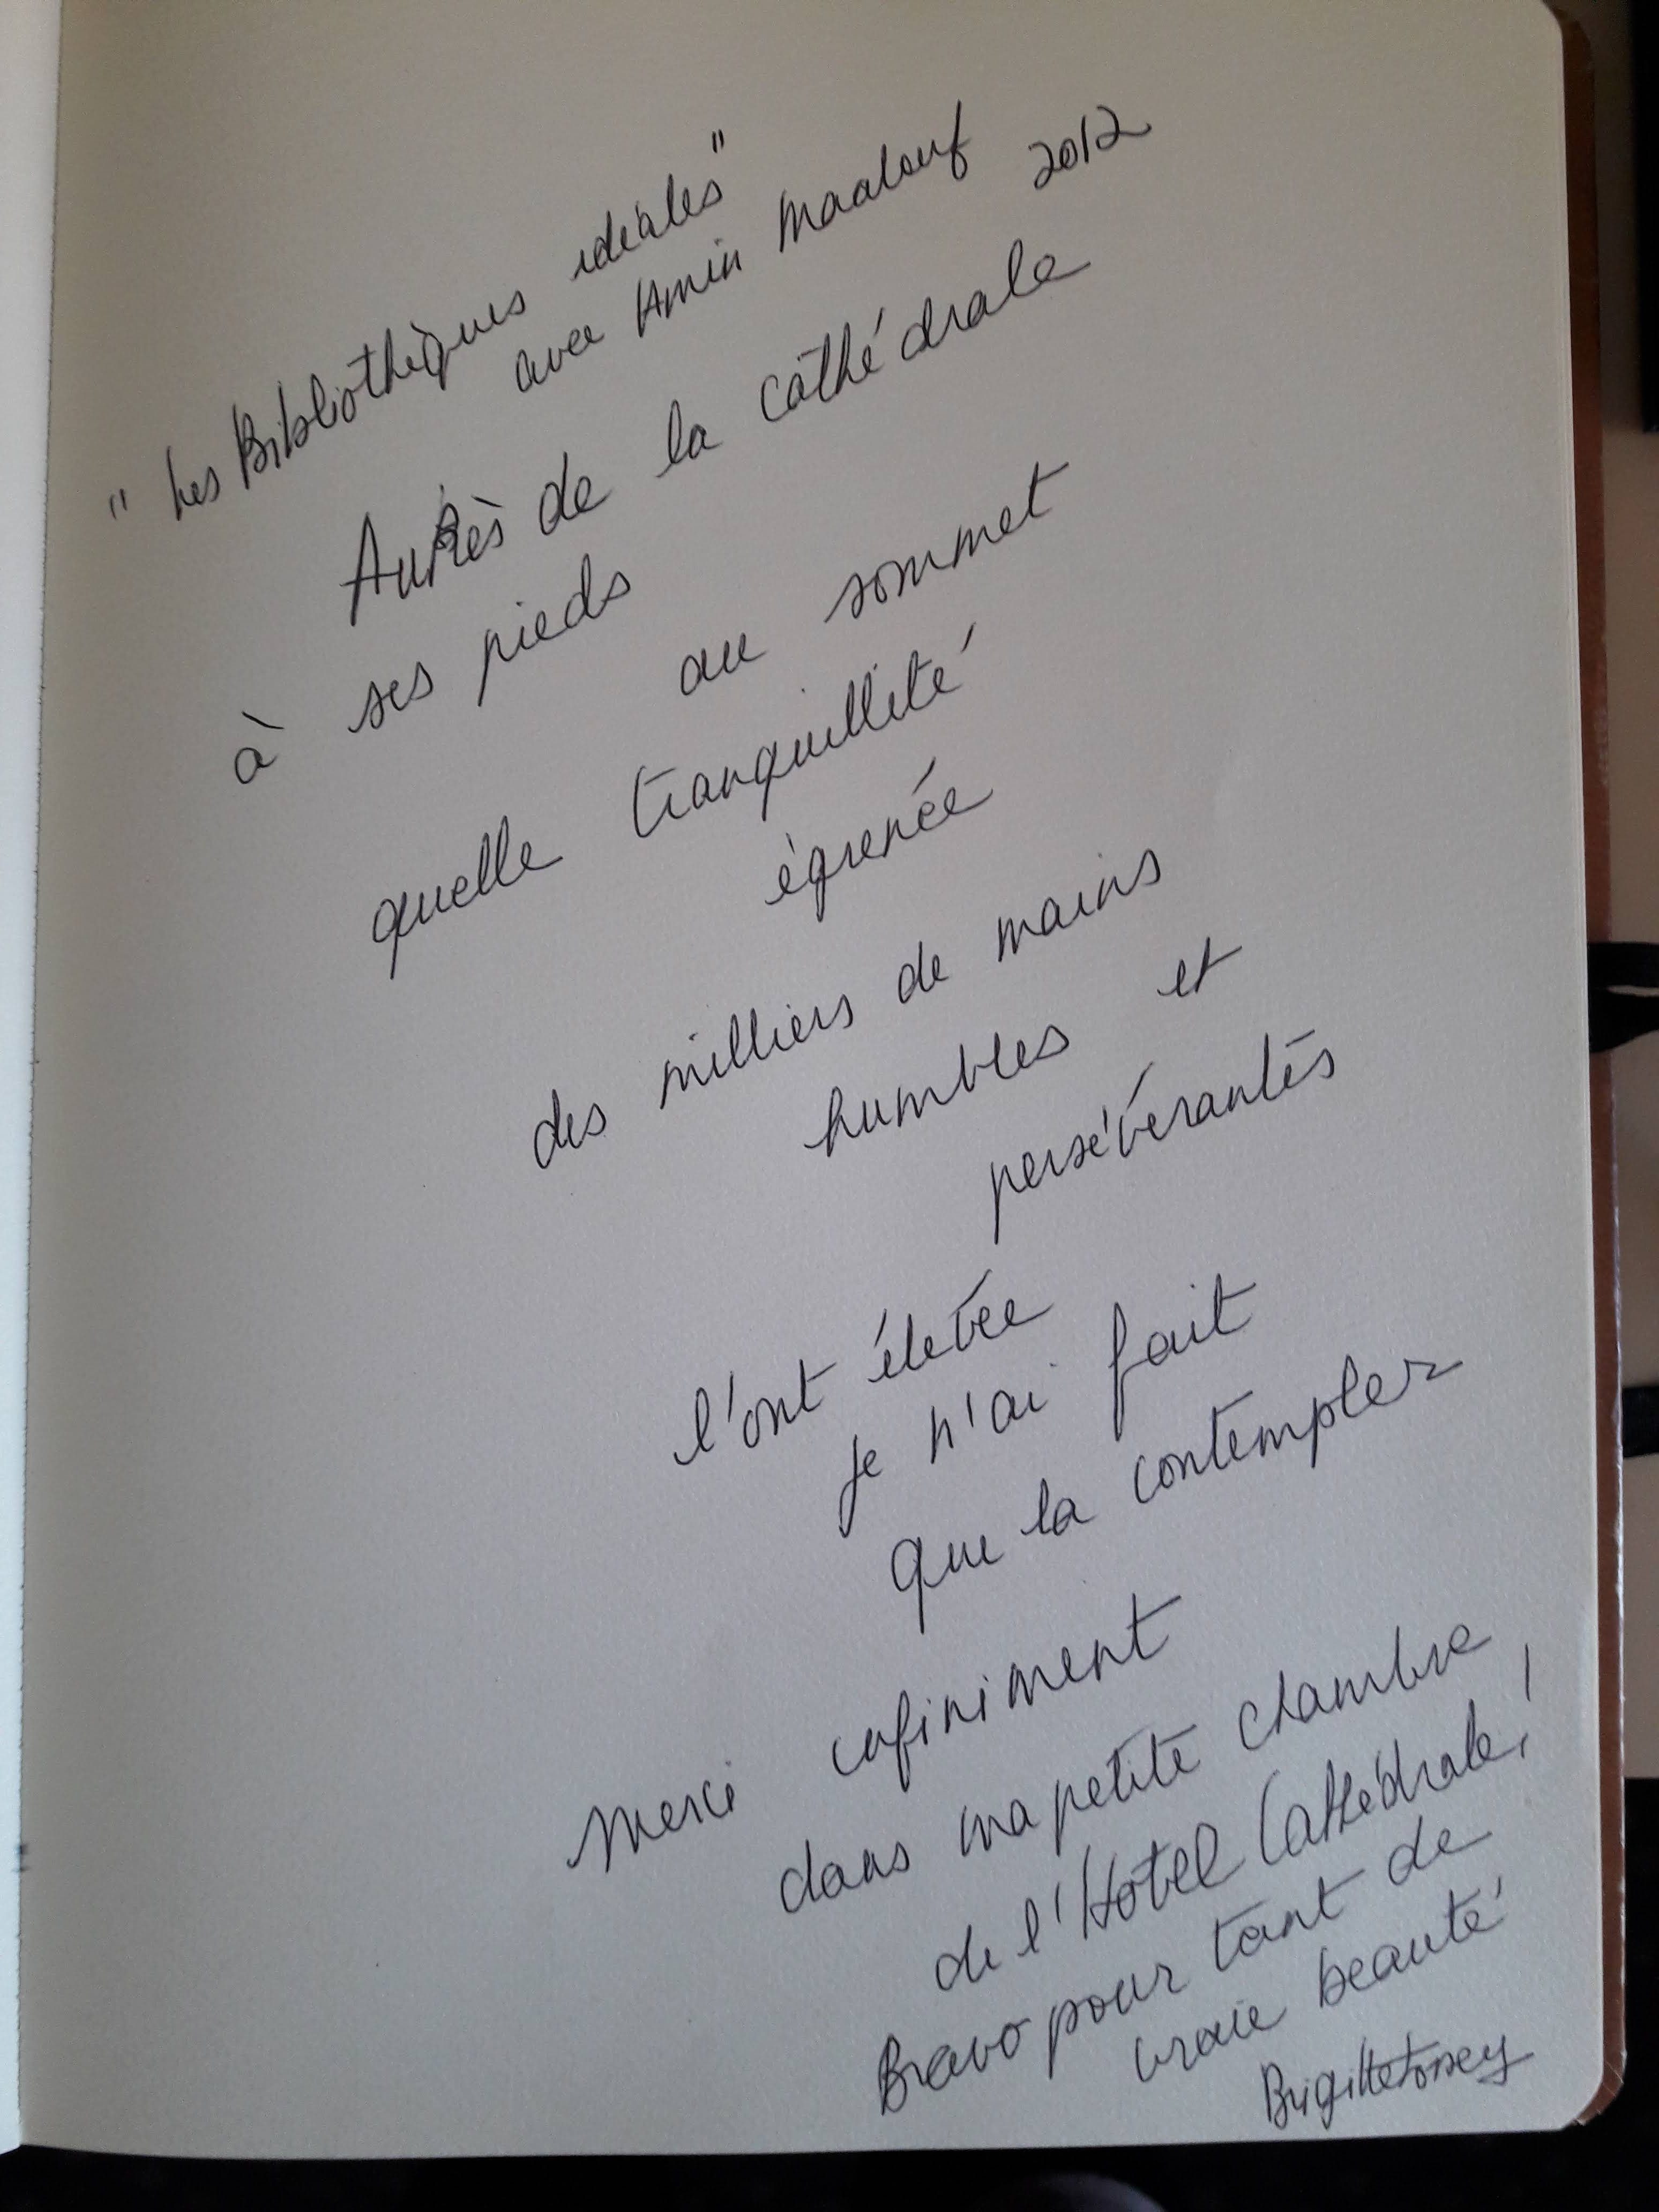 "Les Bibliothèques idéales"
avec Amin Maalouf 2012
Auprès de la cathédrale
à ses pieds
au sommet
quelle tranquillité
égrenée
des milliers de mains
humbles et
persévérantes
l'ont élevée
je n'ai fait
que la contempler
Merci infiniment
dans ma petite chambre
de l'Hotel Cathédrale,!
Bravo pour tant de
vraie beauté
Brigitte